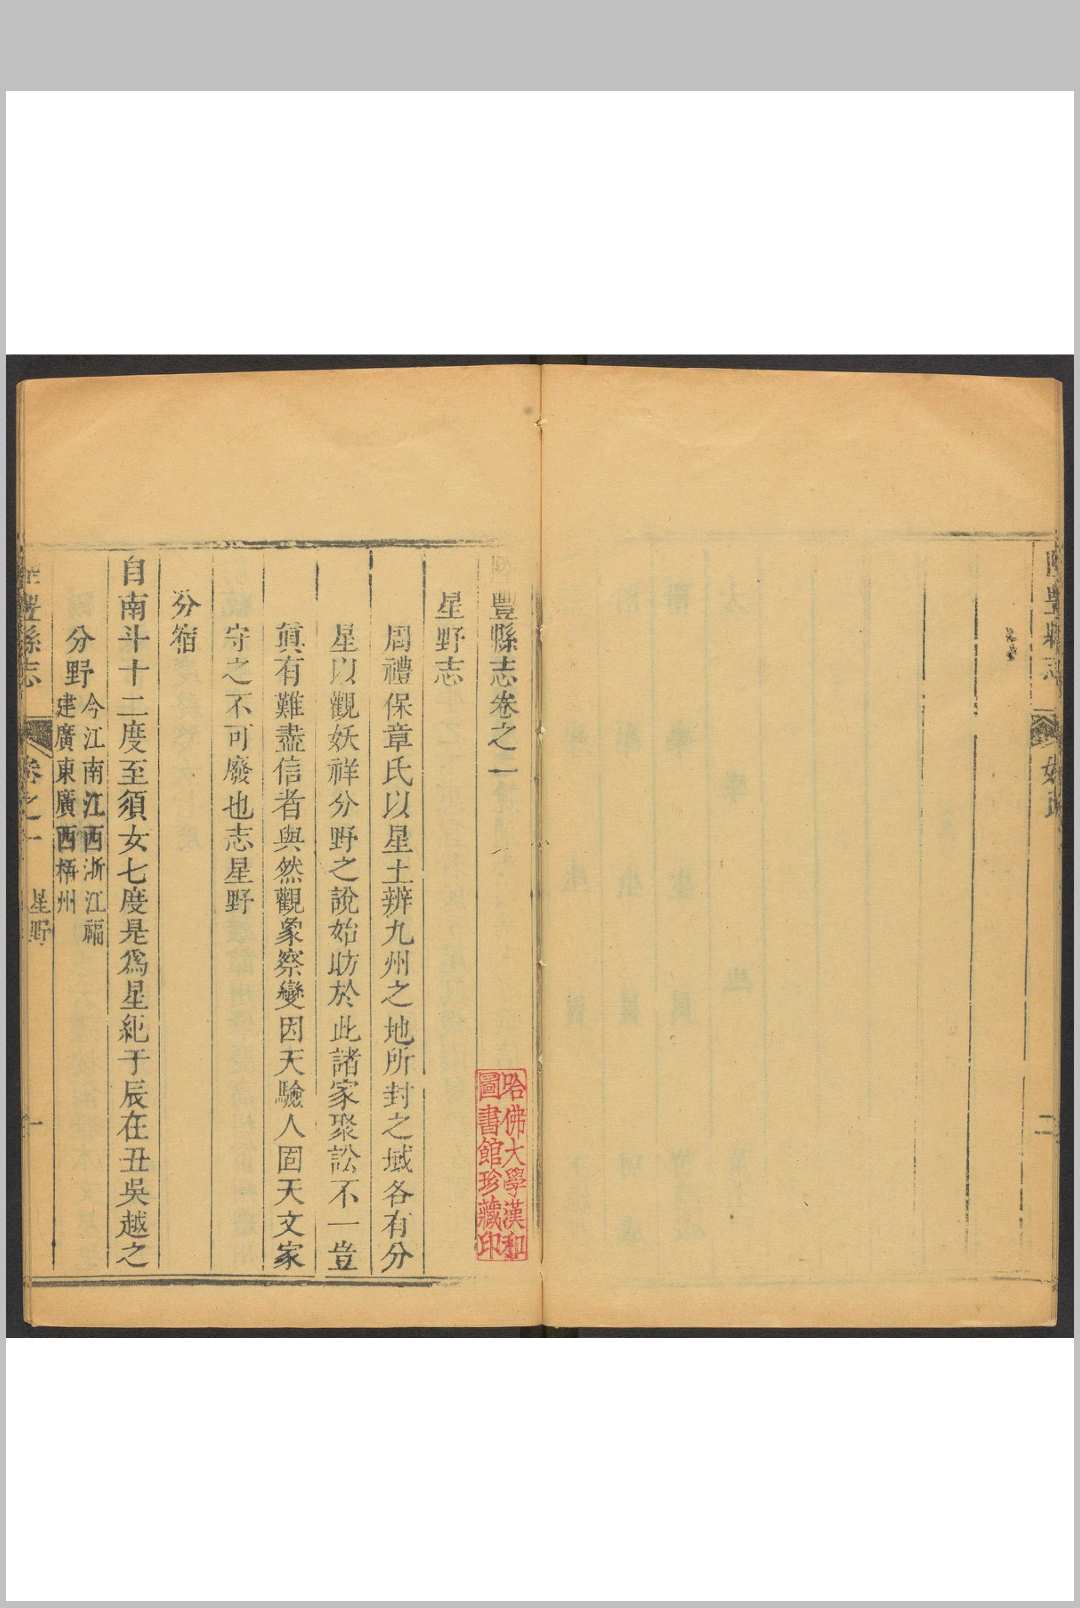 豐縣志
二
豐縣志卷之一
哈佛大學漢和
圖書館珍藏印
星野志
周禮保章氏以星土辨九州之地所封之域各有分
星以觀妖祥分野之說始昉於此諸家聚訟不一豈
眞有難盡信者與然觀象察變因天驗人固天文家
守之不可廢也志星野
分宿
自南斗十二度至須女七度是爲星紀于辰在丑吳越之
分野
今江南江西浙江福
建廣東廣西梧州
豐縣志
卷之一
星野
一